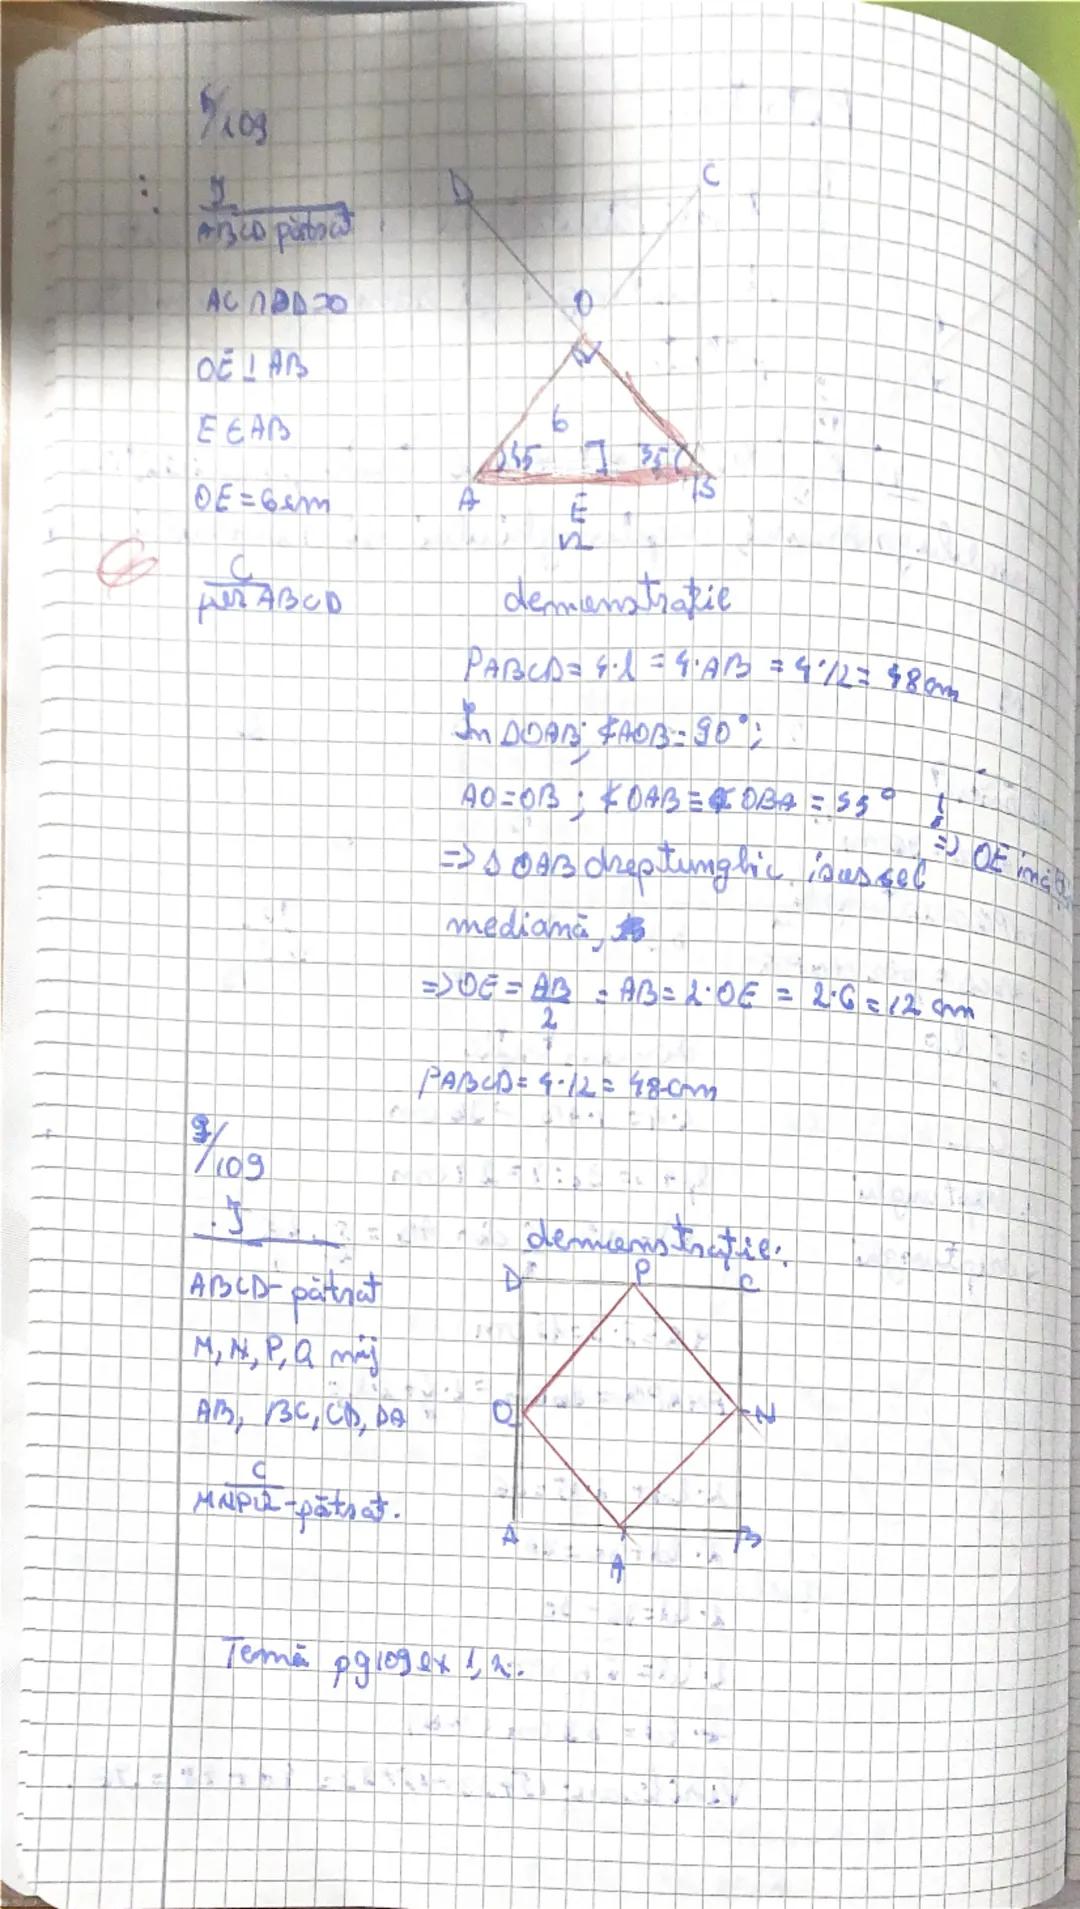 5/109
I
ABCD pătrat
AC ∩ BD = O
OE ⊥ AB
E ∈ AB
OE = 6 cm
D C
O
6
45 45
A E B
12
C
per ABCD
demonstrație
PABCD = 4·l = 4·AB = 4·12 = 48 cm
În ΔOAB; ∢AOB = 90°;
AO = OB; ∢OAB ≡ ∢OBA = 45°
=> Δ OAB dreptunghic isoscel => OE
mediană,
=> OE = AB/2 = AB = 2·OE = 2·6 = 12 cm
PABCD = 4·12 = 48 cm
9/109
I
demonstrație:
ABCD - pătrat
M, N, P, Q mij
AB, BC, CD, DA
C
MNPQ - pătrat.
D P C
Q N
A B
A
Temă pg 109 ex 1, 2.